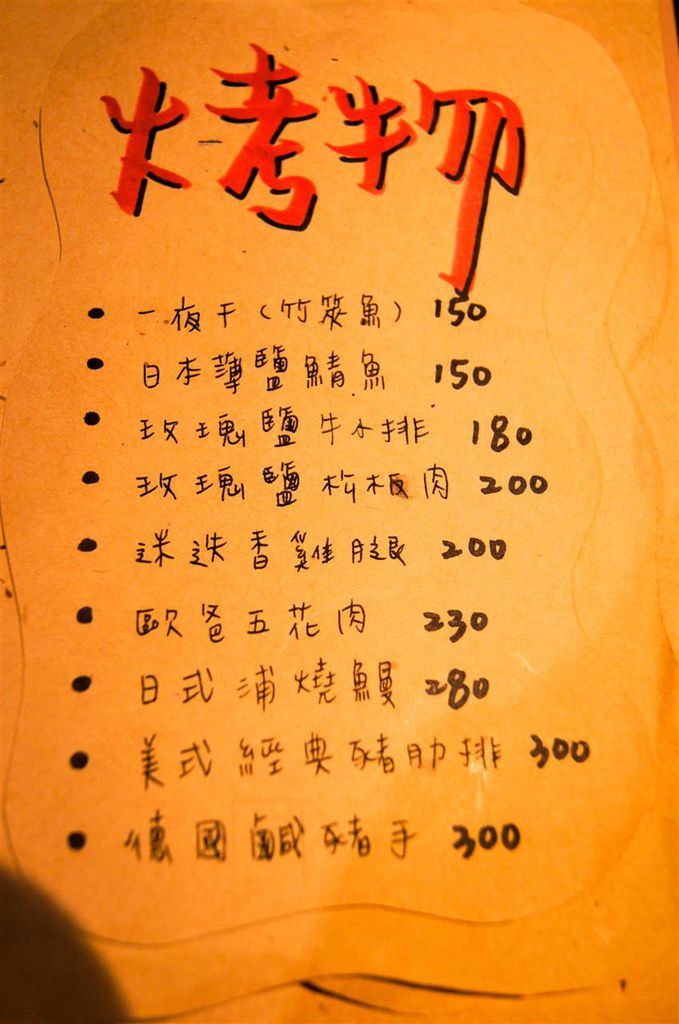 烤物
• 一夜干(竹筴魚) 150
• 日本薄鹽鯖魚 150
• 玫瑰鹽牛小排 180
• 玫瑰鹽松板肉 200
• 迷迭香雞腿 200
• 歐爸五花肉 230
• 日式浦燒鰻 280
• 美式經典豬肋排 300
• 德國鹹豬手 300